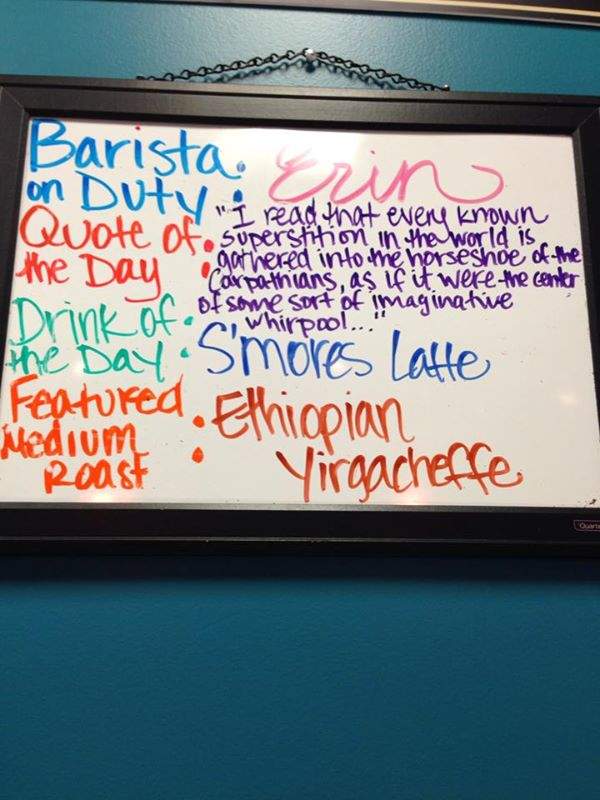 Barista: Erin
on Duty
Quote of: "I read that every known
the Day superstition in the world is
gathered into the horseshoe of the
Carpathians, as if it were the center
of some sort of imaginative
whirpool..."
Drink of: S'mores Latte
the Day
Featured: Ethiopian
Medium Yirgacheffe
Roast